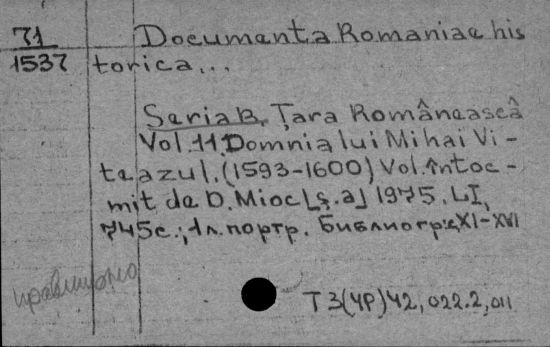 71 Documenta Romaniae his
1537 torica...
Seria B, Țara Românească
Vol.11. Domnia lui Mihai Vi-
teazul. (1593-1600) Vol. întoc-
mit de D. Mioc [ș.a] 1975. LI,
745с.; 1л. портр. Библиогр:с XI-XVI
правильно
T3(4P)42,022.2,011